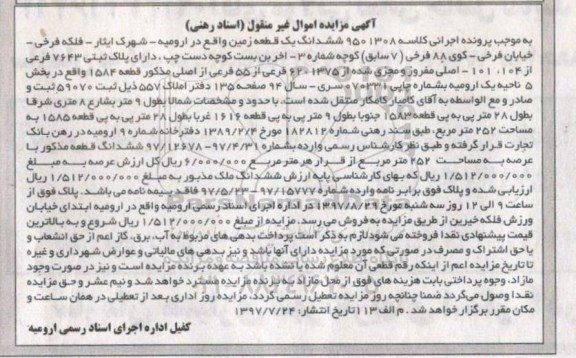 آگهی مزایده اموال غیر منقول (اسناد رهنی)
به موجب پرونده اجرائی کلاسه ۹۵۰۱۳۰۸ ششدانگ یک قطعه زمین واقع در ارومیه - شهرک ایثار - فلکه فرخی -
خیابان فرخی - کوی ۸۸ فرخی (۷ سابق) کوچه شماره ۳ - آخرین بست کوچه دست چپ ، دارای پلاک ثبتی ۷۶۴۳ فرعی
از ۱۰۴، ۱۰۱ - اصلی مفروز و مجزی شده از ۱۳۷۵-۶۲۰ فرعی از ۵۵ فرعی از اصلی مذکور قطعه ۱۵۸۴ واقع در بخش
۵ ناحیه یک ارومیه بشماره چاپی سری - سال ۹۴ صفحه ۱۳۵ دفتر املاک ۵۵۷ ذیل ثبت ۵۹۰۷۰ ثبت و
صادر و مع الواسطه به آقای کامیار کامکار منتقل شده است. با حدود و مشخصات شمالا بطول ۹ متر بشارع ۸ متری شرقا
بطول ۲۸ متر پی به پی قطعه ۱۵۸۳ جنوبا بطول ۹ متر پی به پی قطعه ۱۶۱۶ غربا بطول ۲۸ متر پی به پی قطعه ۱۵۸۵ به
مساحت ۲۵۲ متر مربع، طبق سند رهنی شماره ۱۸۲۸۱۲ مورخ ۱۳۸۹/۲/۴ دفترخانه شماره ۹ ارومیه در رهن بانک
تجارت قرار گرفته و طبق نظر کارشناس رسمی وارده بشماره ۹۷/۱۲۶۷۸-۹۷/۴/۳۱ ششدانگ قطعه مذکور با
عرصه به مساحت ۲۵۲ متر مربع از قرار هر متر مربع ۶/۰۰۰/۰۰۰ ریال کل ارزش عرصه به مبلغ
۱/۵۱۲/۰۰۰/۰۰۰ ریال که بهای کارشناسی پایه ارزش ششدانگ ملک مذبور به مبلغ ۱/۵۱۲/۰۰۰/۰۰۰ ریال
ارزیابی شده و پلاک فوق برابر نامه وارده شماره ۹۷/۱۵۷۷۷-۹۷/۵/۲۳ فاقد بیمه نامه می باشد. پلاک فوق از
ساعت ۹ الی ۱۲ روز سه شنبه مورخ ۱۳۹۷/۸/۲۹ در اداره اجرای اسناد رسمی ارومیه واقع در ارومیه ابتدای خیابان
ورزش فلکه خیبرین از طریق مزایده به فروش می رسد. مزایده از مبلغ ۱/۵۱۲/۰۰۰/۰۰۰ ریال شروع و به بالاترین
قیمت پیشنهادی نقدا فروخته می شود لازم به ذکر است پرداخت بدهی های مربوط به آب، برق، گاز اعم از حق انشعاب و
یا حق اشتراک و مصرف در صورتی که مورد مزایده دارای آنها باشد و نیز بدهی های مالیاتی و عوارض شهرداری و غیره
تا تاریخ مزایده اعم از اینکه رقم قطعی آن معلوم شده یا نشده باشد به عهده برنده مزایده است و نیز در صورت وجود
مازاد، وجوه پرداختی بابت هزینه های فوق از محل مازاد به برنده مزایده مسترد خواهد شد و نیم عشر و حق مزایده
نقدا وصول می گردد ضمنا چنانچه روز مزایده تعطیل رسمی گردد، مزایده روز اداری بعد از تعطیلی در همان ساعت و
مکان مقرر برگزار خواهد شد . م الف ۱۱۳ تاریخ انتشار: ۱۳۹۷/۷/۲۴
کفیل اداره اجرای اسناد رسمی ارومیه